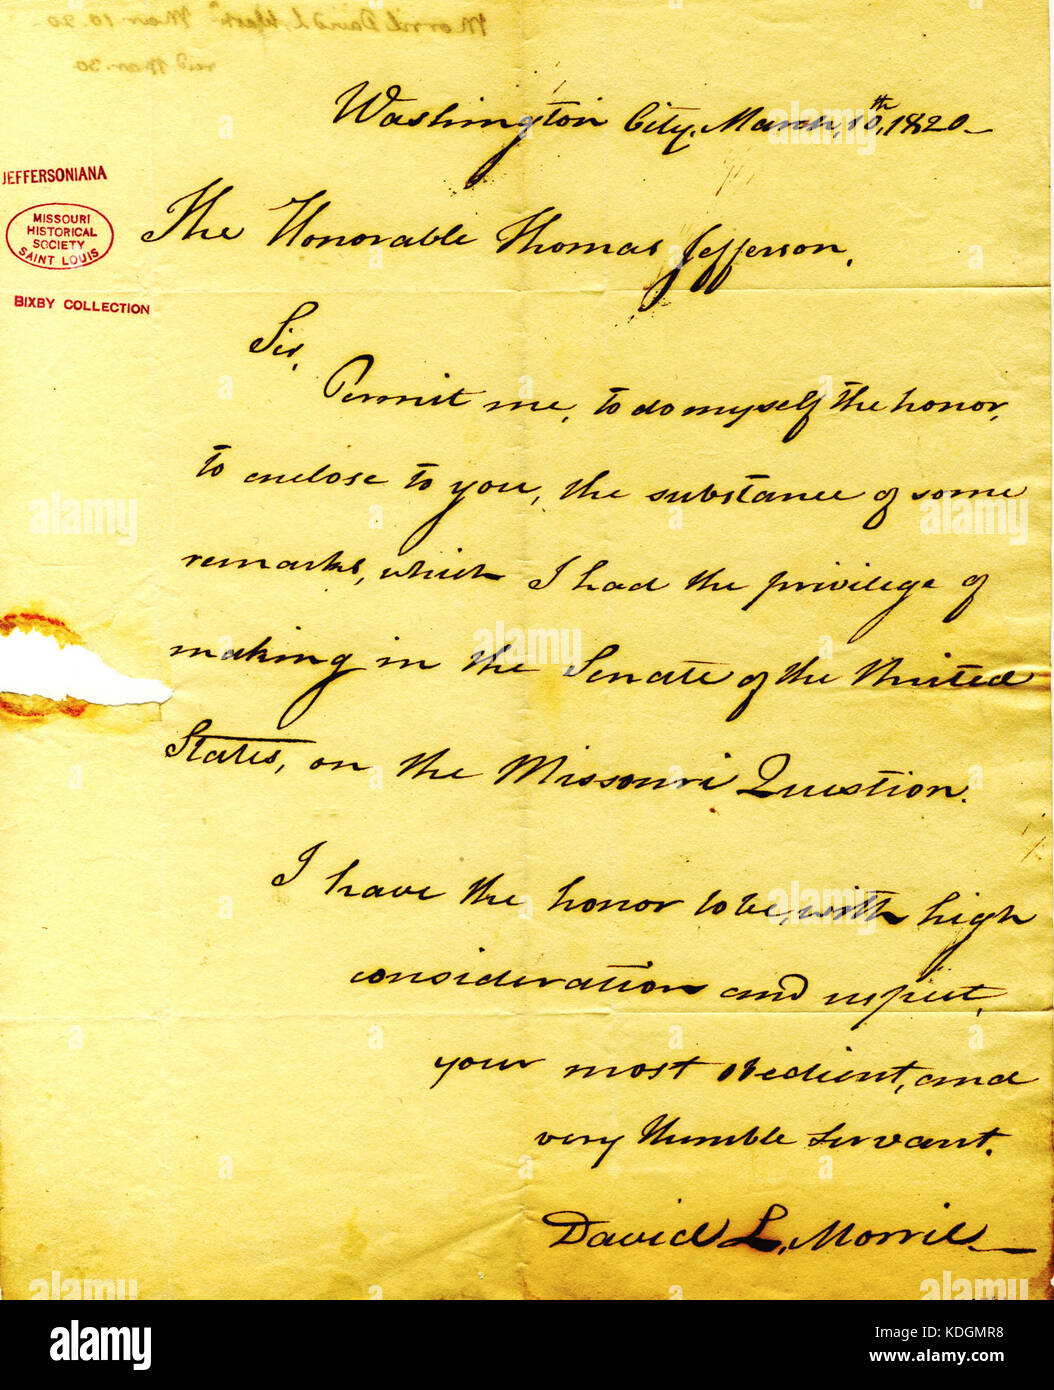 Morril David L. Mar. 10. 20
recd Mar. 30
Washington City, March, 10th, 1820
JEFFERSONIANA
MISSOURI
HISTORICAL
SOCIETY
SAINT LOUIS
BIXBY COLLECTION
The Honorable Thomas Jefferson,
Sir,
Permit me, to do myself the honor,
to enclose to you, the substance of some
remarks, which I had the privilege of
making in the Senate of the United
States, on the Missouri Question.
I have the honor to be, with high
consideration and respect,
your most obedient, and
very humble servant.
David L. Morril
alamy
alamy
Image ID: KDGMR8
www.alamy.com